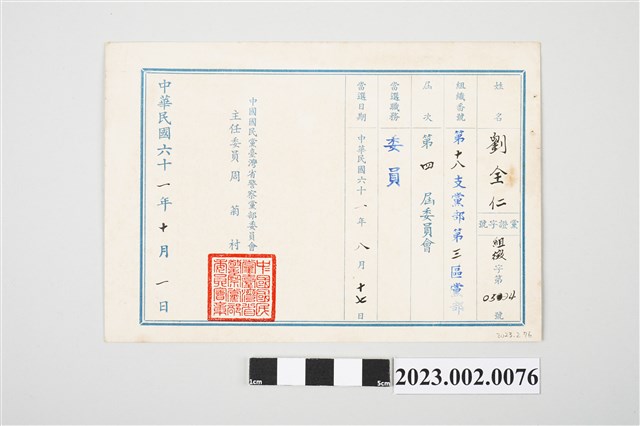 姓名 劉全仁
黨證字號 組緻字第 號
組織番號 第十八支黨部第三區黨部
屆次 第四屆委員會
當選職務 委員
當選日期 中華民國六十一年八月十七日
中國國民黨臺灣省警察黨部委員會
主任委員 周菊村
中華民國六十一年十月一日
2023.2.76
1cm
5cm
2023.002.0076